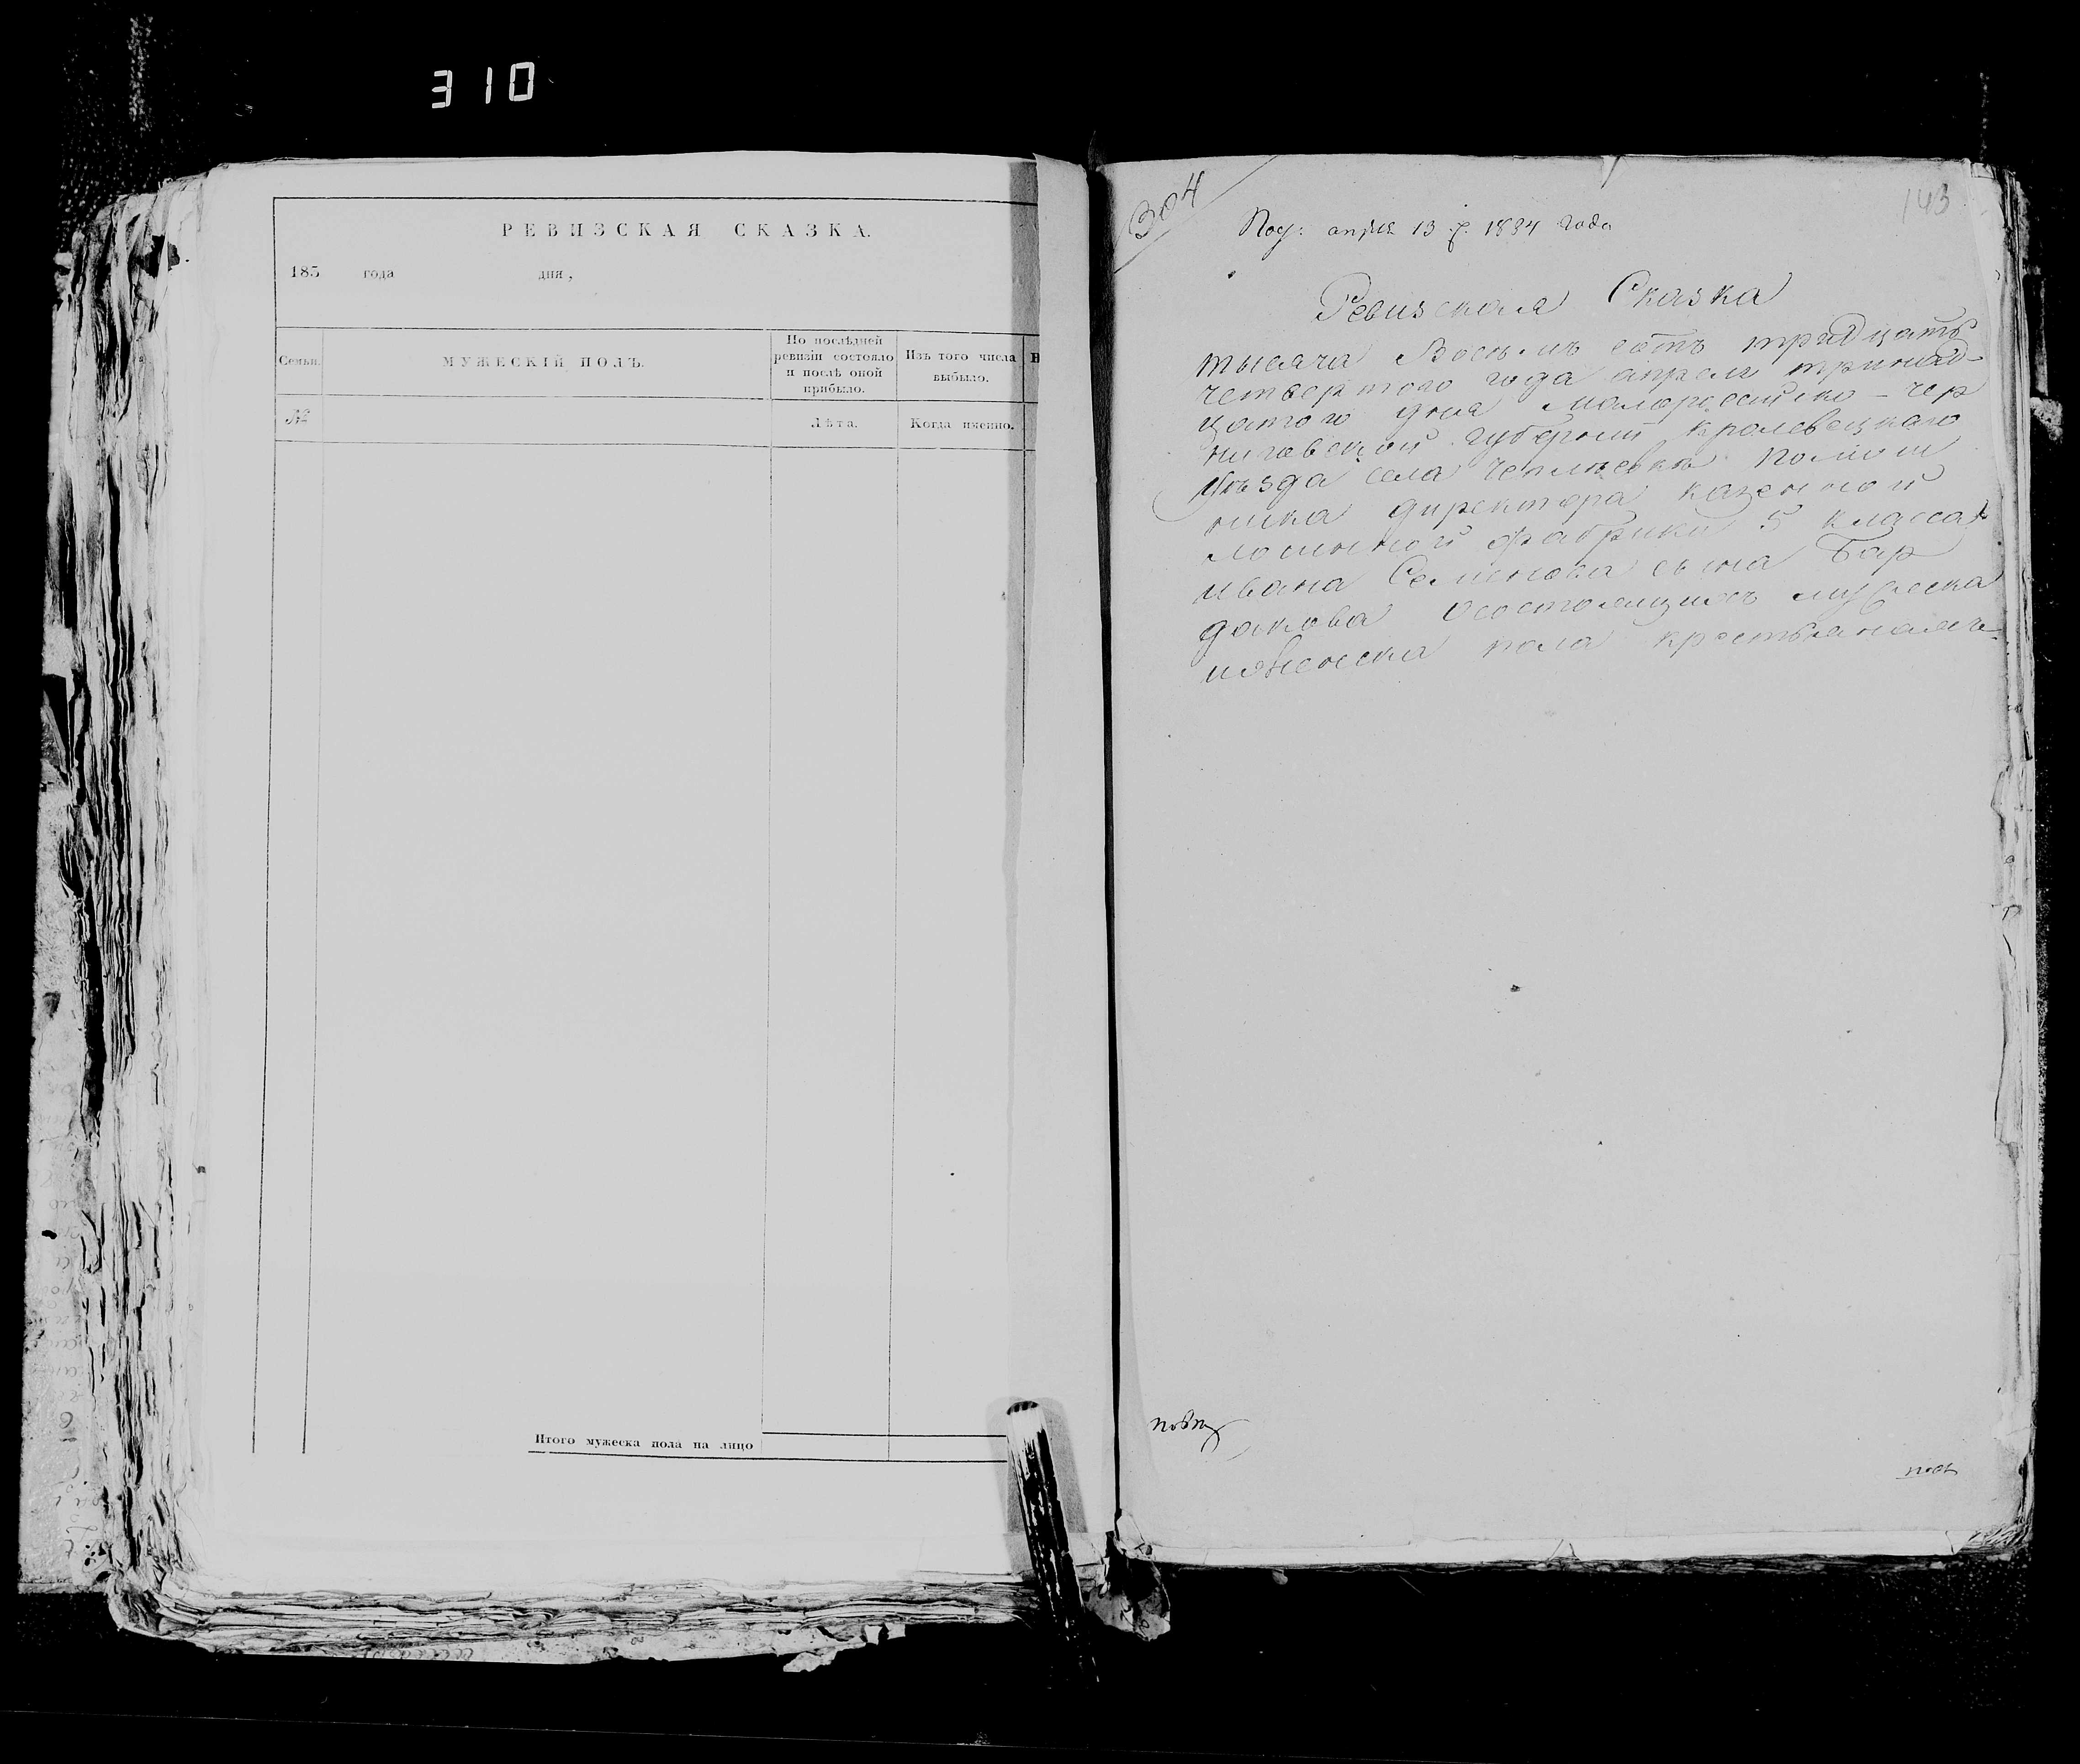 310
РЕВИЗСКАЯ СКАЗКА.
183 года дня,
Семьи.
МУЖЕСКІЙ ПОЛЪ.
По послѣдней
ревизіи состояло
и послѣ оной
прибыло.
Изъ того числа
выбыло.
№
Лѣта.
Когда именно.
Итого мужеска пола на лицо
304
143
Под: апреля 13 д. 1834 года
Ревизская Сказка
тысяча Восемъ сотъ тридцать
четвертого года апреля тринад-
цатого дня Малороссійско-Чер
ниговской губерніи Кролевецкаго
уѣзда села помѣщи
ника директора казенной
фабрики 5 класса
ивана Семенова сына Бар
дакова Осостоящихъ мужеска
иженска пола крестьянахъ